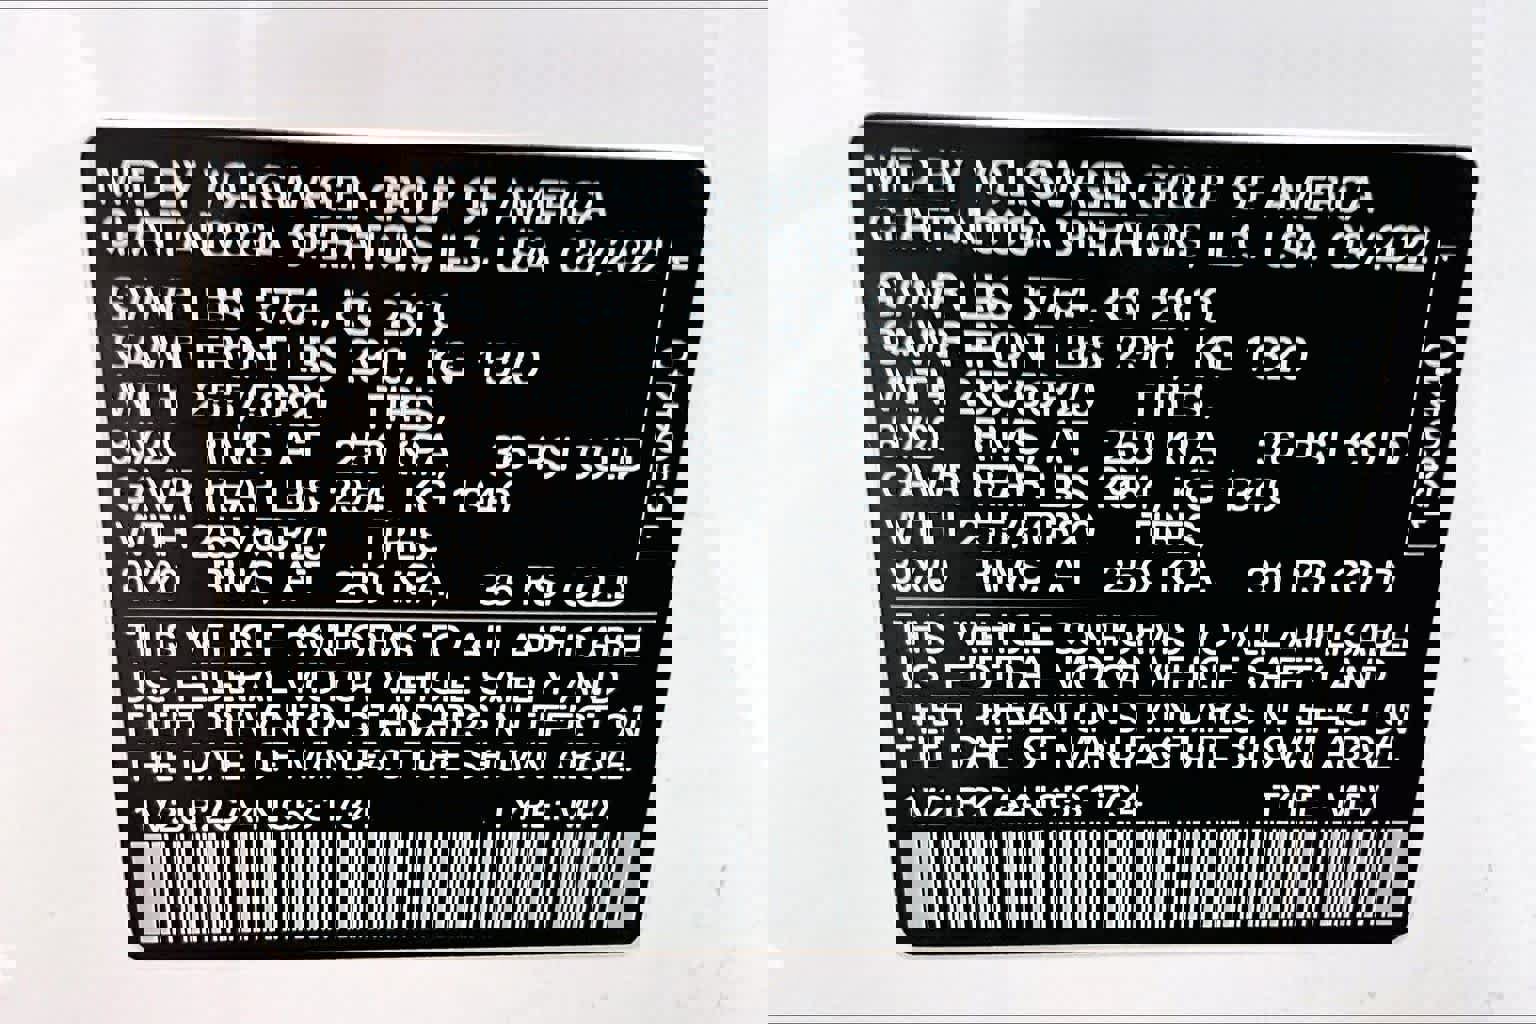 MFD BY VOLKSWAGEN GROUP OF AMERICA
CHATTANOOGA OPERATIONS, LLC. USA
GVWR LBS KG
GAWR FRONT LBS KG 1320
WITH TIRES,
8X20 RIMS AT 250 KPA, 36 PSI COLD
GAWR REAR LBS KG
WITH TIRES,
8X20 RIMS AT 250 KPA, 36 PSI COLD
THIS VEHICLE CONFORMS TO ALL APPLICABLE
US FEDERAL MOTOR VEHICLE SAFETY AND
THEFT PREVENTION STANDARDS IN EFFECT ON
THE DATE OF MANUFACTURE SHOWN ABOVE.
TYPE: MPV
MFD BY VOLKSWAGEN GROUP OF AMERICA
CHATTANOOGA OPERATIONS, LLC. USA
GVWR LBS KG
GAWR FRONT LBS KG 1320
WITH TIRES,
8X20 RIMS AT 250 KPA, 36 PSI COLD
GAWR REAR LBS KG
WITH TIRES,
8X20 RIMS AT 250 KPA, 36 PSI COLD
THIS VEHICLE CONFORMS TO ALL APPLICABLE
US FEDERAL MOTOR VEHICLE SAFETY AND
THEFT PREVENTION STANDARDS IN EFFECT ON
THE DATE OF MANUFACTURE SHOWN ABOVE.
TYPE: MPV